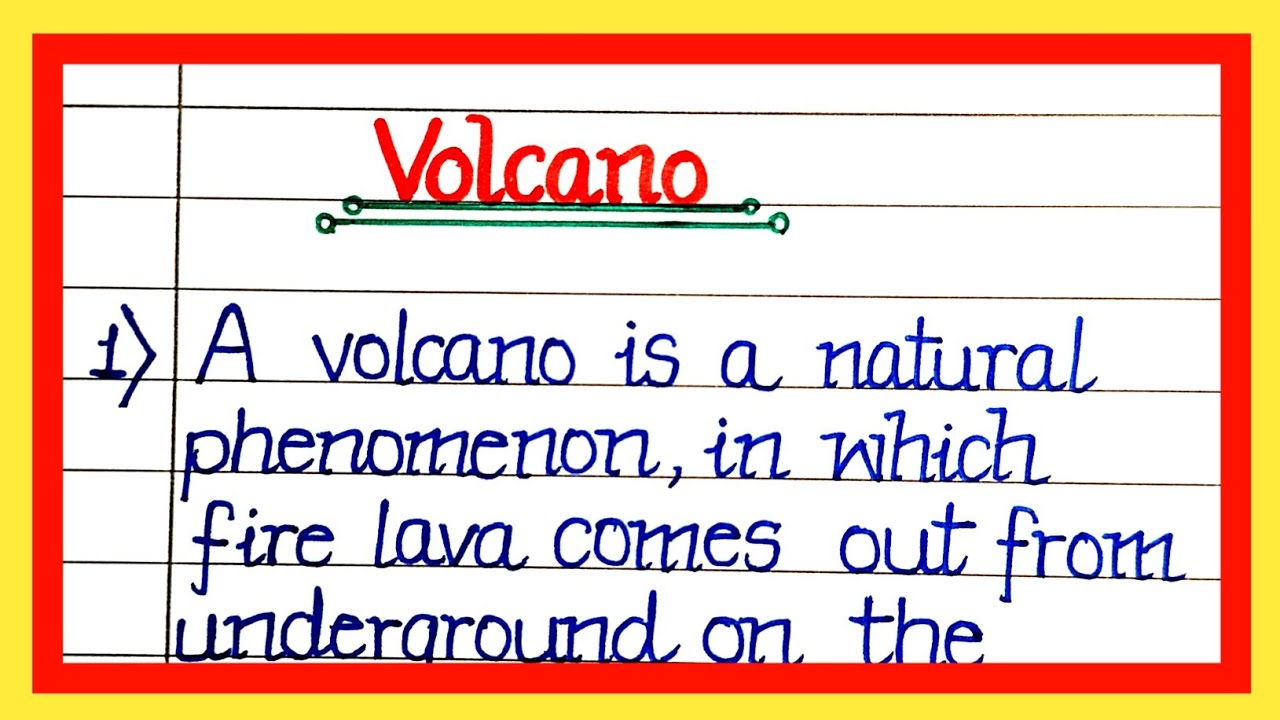 Volcano
1) A volcano is a natural
phenomenon, in which
fire lava comes out from
underground on the